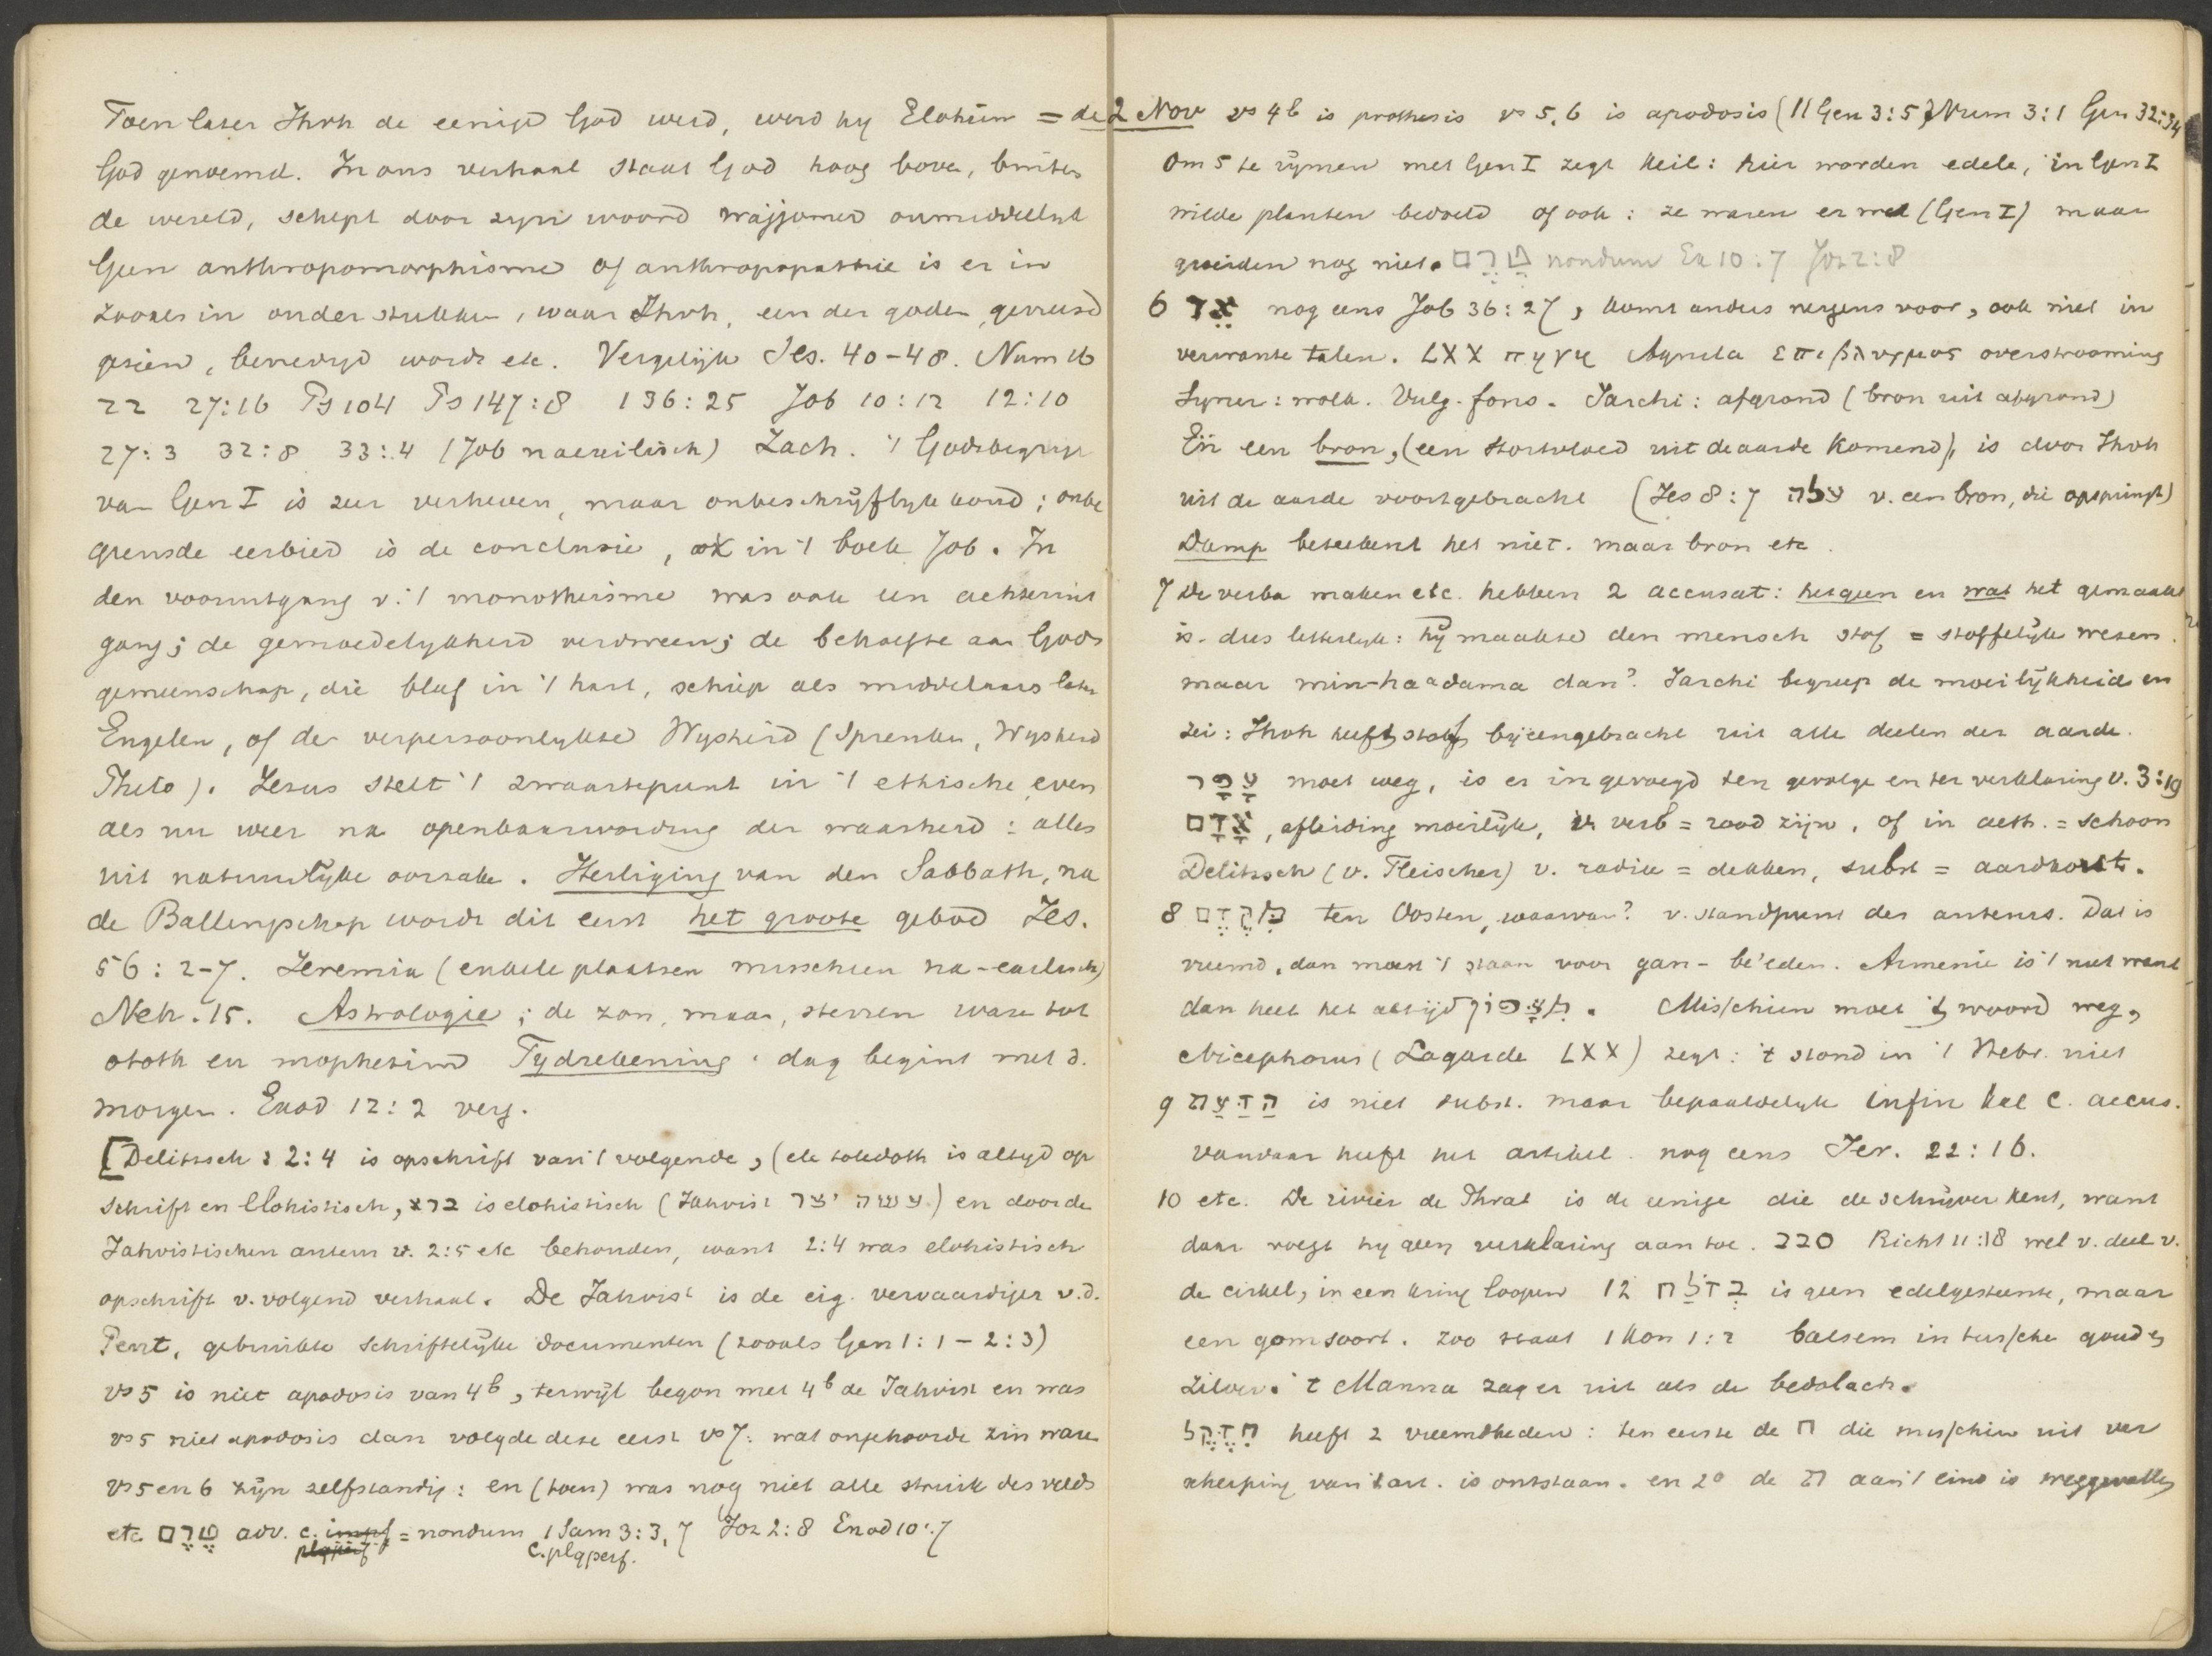 Toen later Jhvh de eenige God werd, werd hy Elohim = de
God genoemd. In ons verhaal staat God hoog boven, buiten
de wereld, schept door zyn woord wajjomer onmiddellyk
Geen anthropomorphisme of anthropopathie is er in
zooals in andere stukken, waar Jhvh, een der goden, gevreesd
gezien, bevredigd wordt etc. Vergelijk Jes. 40-48. Num 16
22 27:16 Ps 104 Ps 147:8 136:25 Job 10:12 12:10
27:3 32:8 33:4 (Job naexilisch) Zach. 't Godsbegrip
van Gen I is zeer verheven, maar onbeschrijflyk koud; onbe
grensde eerbied is de conclusie, ook in 't boek Job. In
den vooruitgang v. 't monotheisme was ook een achteruit
gang; de gemoedelykheid verdween; de behoefte aan Gods
gemeenschap, die bleef in 't hart, schiep als middelaars later
Engelen, of de verpersoonlykte Wysheid (Spreuken, Wysheid
Philo). Jezus stelt 't zwaartepunt in 't ethische, even
als nu weer na openbaarwording der waarheid: alles
uit natuurlyke oorzake. Heiliging van den Sabbath, na
de Ballingschap wordt dit eerst het groote gebod Jes.
56:2-7. Jeremia (enkele plaatsen misschien na-exilisch)
Neh. 15. Astrologie; de zon, maan, sterren waren tot
ototh en mophetim Tydrekening: dag begint met d.
morgen. Exod 12:2 verg.
[Delitzsch: 2:4 is opschrift van 't volgende, (ele toledoth is altyd op
schrift en Elohistisch, ברא is elohistisch (Jahvist יצר עשה) en door de
Jahvistischen auteur v. 2:5 etc behouden, want 2:4 was elohistisch
opschrift v. volgend verhaal. De Jahvist is de eig. vervaardiger v.d.
Pent, gebruikte schriftelyke documenten (zooals Gen 1:1-2:3)
vs 5 is niet apodosis van 4b, terwijl begon met 4b de Jahvist en was
vs 5 niet apodosis dan volgde deze eerst vs 7: wat ongehoorde zin ware
vs 5 en 6 zijn zelfstandig: en (toen) was nog niet alle struik des velds
etc טֶרֶם adv. c. impf = nondum 1 Sam 3:3,7 Joz 2:8 Exod 10:7
plqperf c. plqperf.
2 Nov vs 4b is prothesis vs 5,6 is apodosis (// Gen 3:5) Num 3:1 Gen 32:34
Om 5 te rijmen met Gen I zegt Keil: hier worden edele, in Gen I
wilde planten bedoeld of ook: ze waren er wel (Gen I) maar
groeiden nog niet. טֶרֶם nondum Ex 10:7 Joz 2:8
6 אֵד nog eens Job 36:27, komt anders nergens voor, ook niet in
verwante talen. LXX πηγη Aquila επιβλυγμος overstrooming
Symm: wolk. Vulg. fons. Jarchi: afgrond (bron uit afgrond)
En een bron, (een stortvloed uit de aarde komend), is door Jhvh
uit de aarde voortgebracht (Jes 8:7 עלה v. een bron, die opspringt)
Damp beteekent het niet. maar bron etc.
7 De verba maken etc. hebben 2 accusat: hetgeen en wat het gemaakte
is. dus letterlyk: hij maakte den mensch stof = stoffelijk wezen.
maar min-haadama dan? Jarchi begreep de moeilijkheid en
zei: Jhvh heeft stof bijeengebracht uit alle deelen der aarde.
עָפָר moet weg, is er in gevoegd ten gevolge en ter verklaring v. 3:19
אָדָם, afleiding moeilijk, v. verb = rood zijn, of in aeth. = schoon
Delitzsch (v. Fleischer) v. radix = dekken, subst = aardkorst.
8 מִקֶּדֶם ten Oosten, waarvan? v. standpunt des auteurs. Dat is
vreemd, dan moest 't staan voor gan-be'eden. Armenie is 't niet want
dan heet het altijd מִצָּפוֹן. Misschien moet 't woord weg,
Nicephorus (Lagarde LXX) zegt: 't stond in 't Hebr. niet
9 הַדַּעַת is niet subst. maar bepaaldelyk infin kal c. accus.
vandaar heeft het artikel. nog eens Jer. 22:16.
10 etc. De rivier de Phrat is de eenige die de schrijver kent, want
daar voegt hy geen verklaring aan toe. סבב Richt 11:18 wel v. deel v.
de cirkel, in een kring loopen 12 בְּדֹלַח is geen edelgesteente, maar
een gomsoort. zoo staat 1 Kon 1:2 balsem in tusschen goud &
zilver. 't Manna zag er uit als de bedolach.
חִדֶּקֶל heeft 2 vreemdheden: ten eerste de ח die misschien uit ver
scherping van 't art. is ontstaan. en 2° de ת aan 't eind is weggevallen